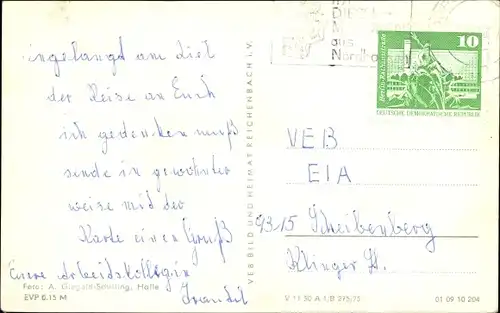 ingelangt am Ziel
der Reise an Euch
ich gedenken muß
sende in gewohnter
weise mit der
Karte einen Gruß
Eure Arbeitskollegin
Foto: A. Gregori-Schilling, Halle
EVP 0.15 M
VEB BILD UND HEIMAT REICHENBACH i. V.
aus
10
DEUTSCHE DEMOKRATISCHE REPUBLIK
VEB
EIA
9315 Scheibenberg
Klinger St.
V 11 50 A 1/B 275/75
01 09 10 204